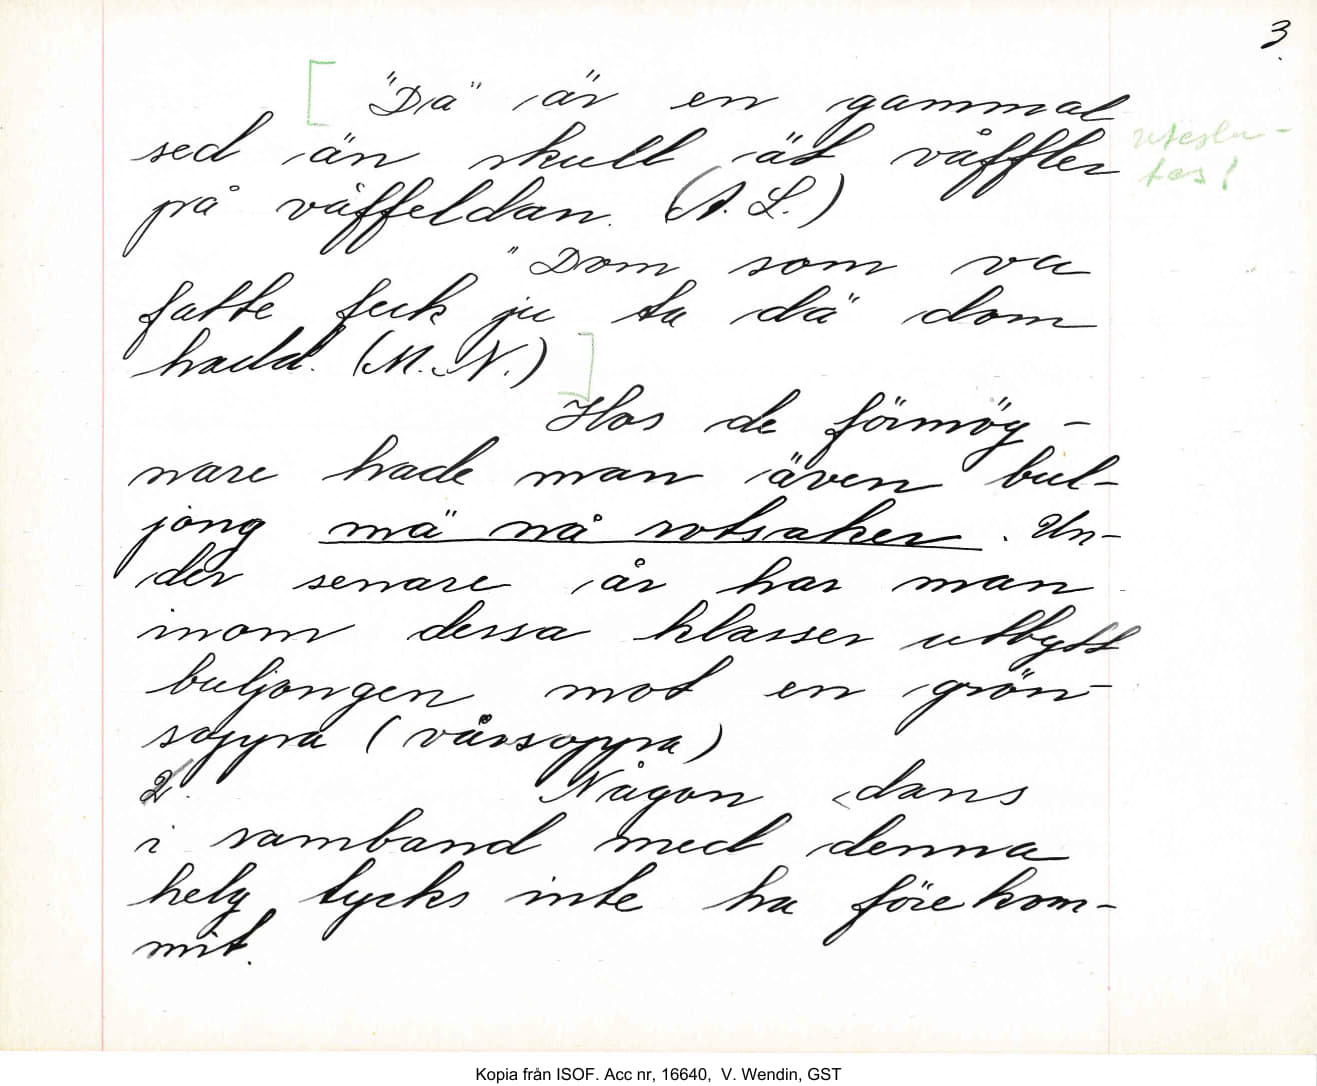 3.
"Dä" är en gammal
sed än skull ät våffler
på våffeldan. (A. L.)
"Dom som va
fatte feck ju ta dä" dom
hadd. (M. N.)
uteslu-
tas!
Hos de förmög-
nare hade man även bul-
jong mä" nå rotsaker. Un-
der senare år har man
inom dessa klasser utbytt
buljongen mot en grön-
soppa (vårsoppa)
2. Någon dans
i samband med denna
helg tycks inte ha förekom-
mit.
Kopia från ISOF. Acc nr, 16640, V. Wendin, GST